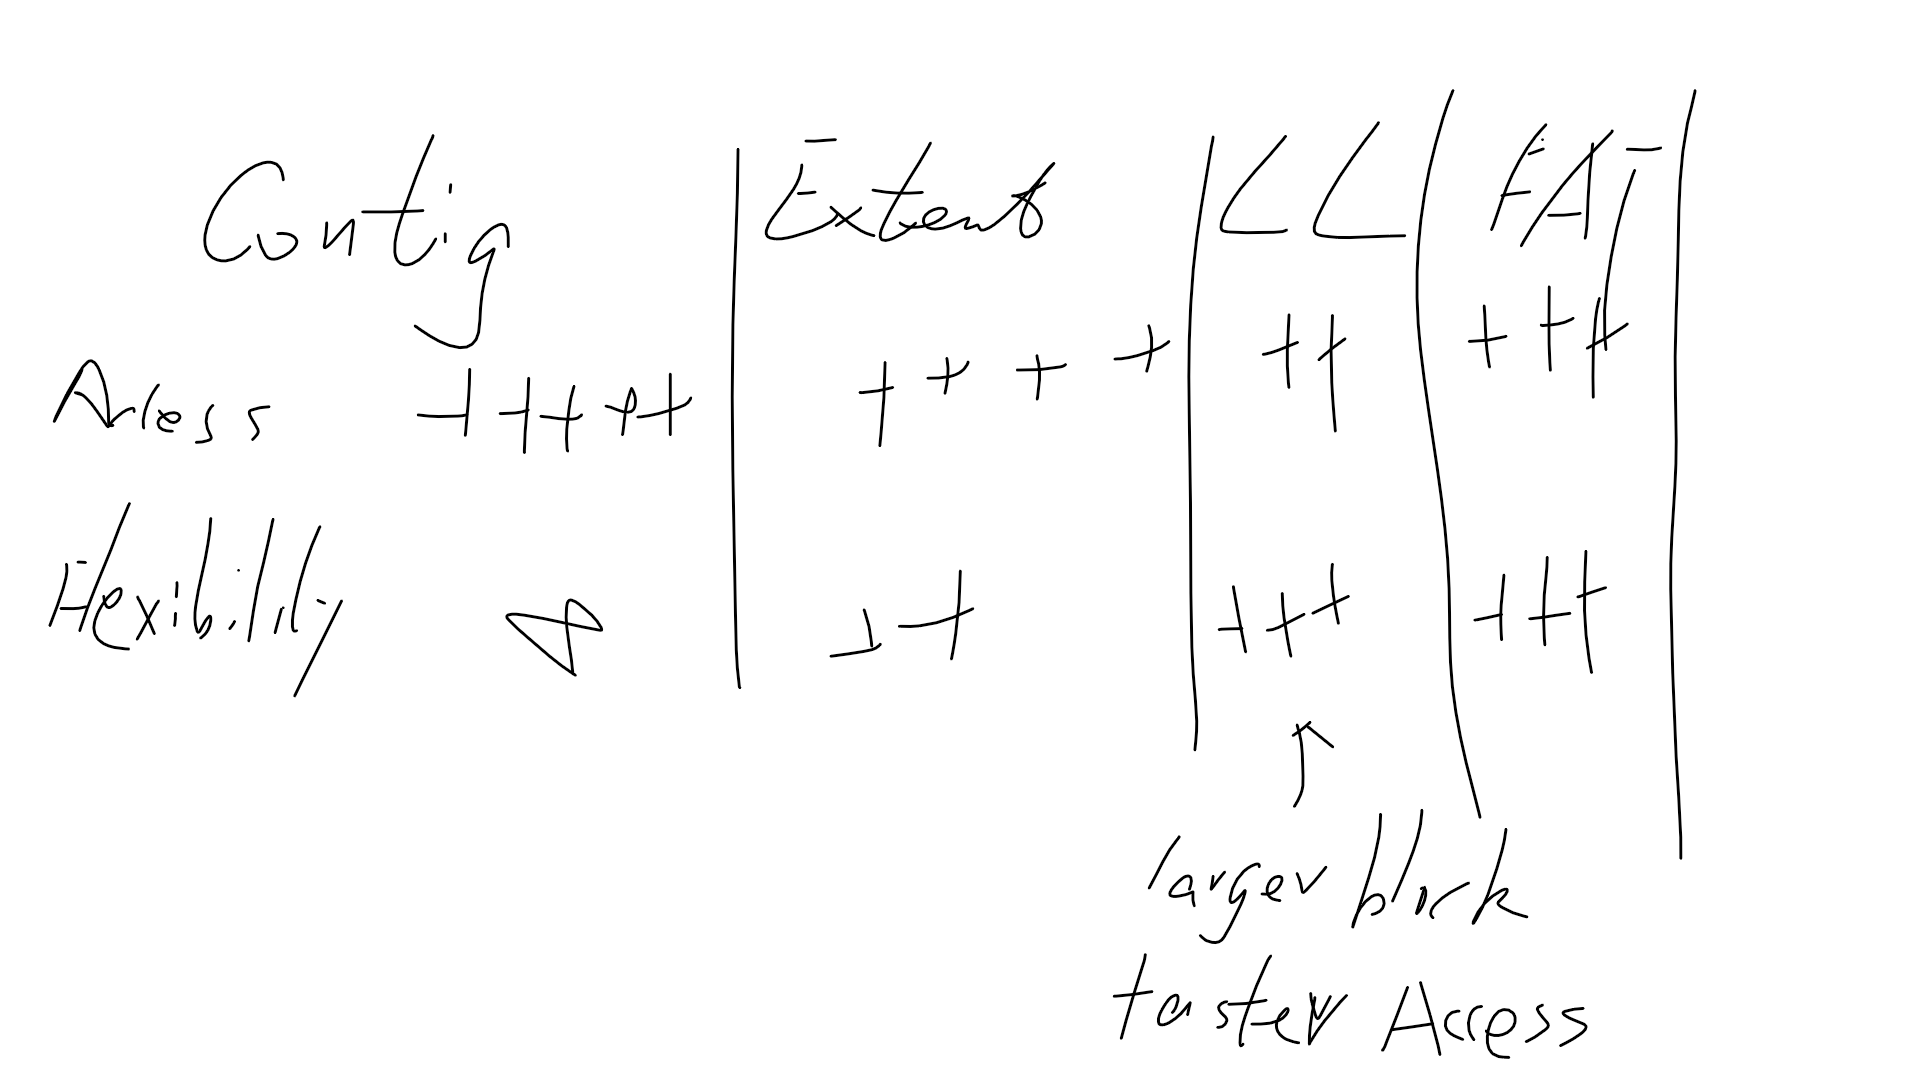 Contig | Extents | LL | FAT |
Access +++++ | ++++ | ++ | +++ |
Flexibility | ++ | +++ | +++ |
↑
larger block
faster Access